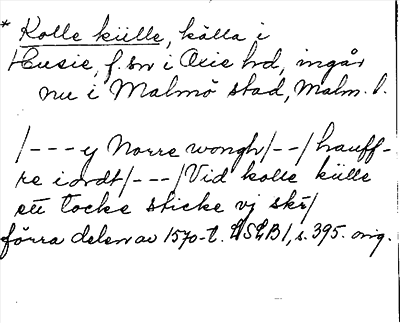 * Kolle kiille, källa i
Husie, f. sn i Oxie hd, ingår
nu i Malmö stad, Malm. l.
/--- y Norre wongh/--/hauff-
re iordt/---/Vid kolle kiille
ett tocke sticke vj skr/
förra delen av 1570-t. LSLB1, s. 395. orig.